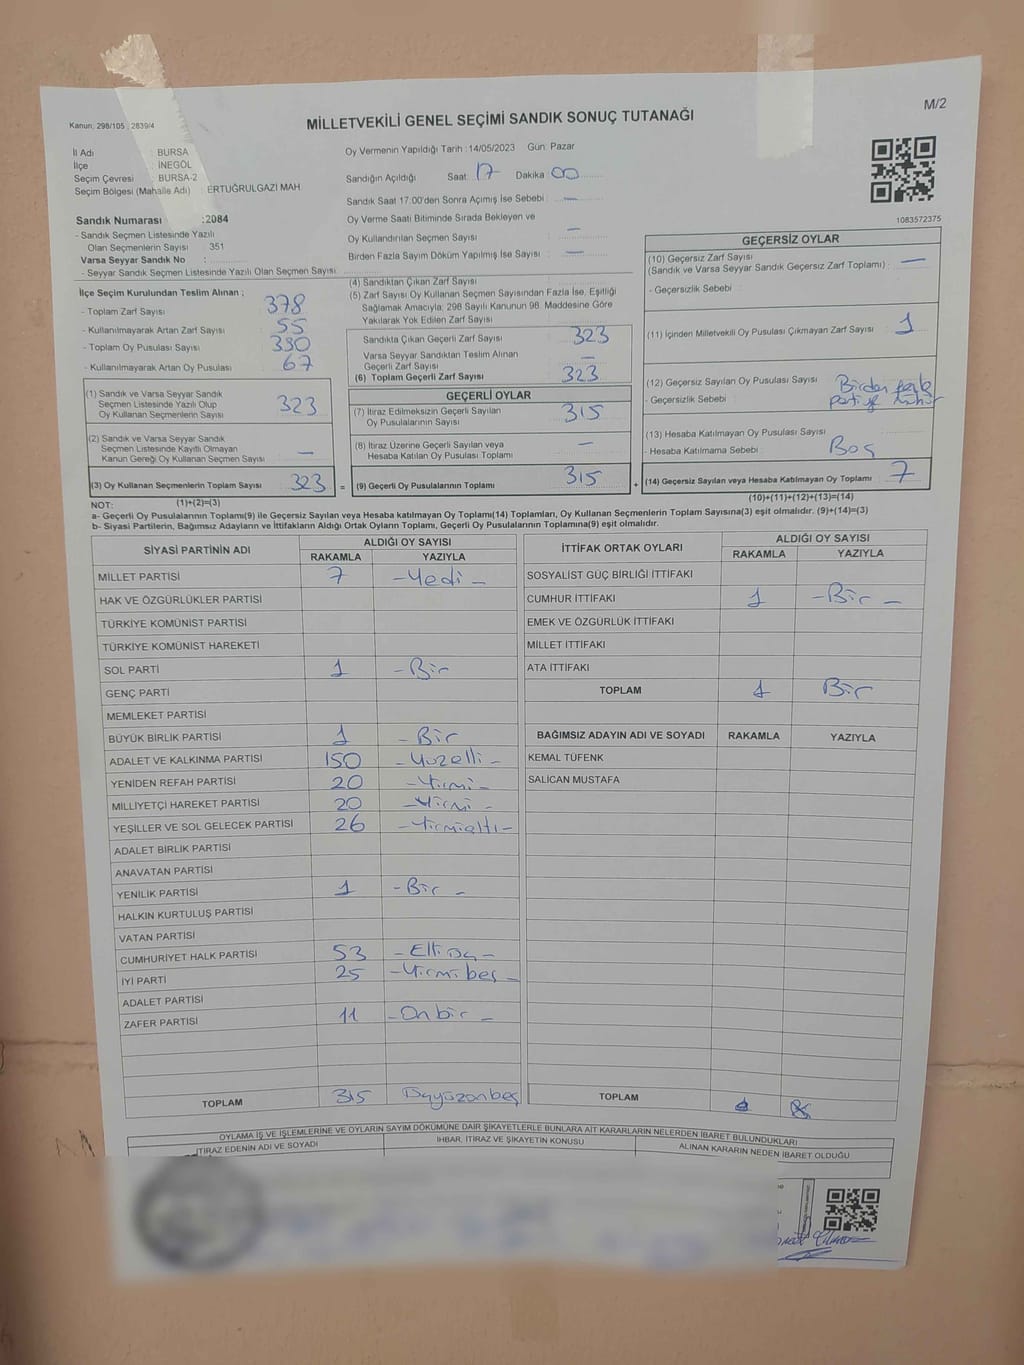 M/2
Kanun: 298/105 ; 2839/4
MİLLETVEKİLİ GENEL SEÇİMİ SANDIK SONUÇ TUTANAĞI
İl Adı : BURSA
İlçe : İNEGÖL
Seçim Çevresi : BURSA-2
Seçim Bölgesi (Mahalle Adı) : ERTUĞRULGAZİ MAH
Sandık Numarası : 2084
- Sandık Seçmen Listesinde Yazılı
Olan Seçmenlerin Sayısı : 351
Varsa Seyyar Sandık No :
- Seyyar Sandık Seçmen Listesinde Yazılı Olan Seçmen Sayısı
Oy Vermenin Yapıldığı Tarih : 14/05/2023 Gün: Pazar
Sandığın Açıldığı Saat 17 Dakika 00
Sandık Saat 17.00'den Sonra Açımış İse Sebebi : —
Oy Verme Saati Bitiminde Sırada Bekleyen ve
Oy Kullandırılan Seçmen Sayısı : —
Birden Fazla Sayım Döküm Yapılmış İse Sayısı : —
1083572375
İlçe Seçim Kurulundan Teslim Alınan ;
- Toplam Zarf Sayısı : 378
- Kullanılmayarak Artan Zarf Sayısı : 55
- Toplam Oy Pusulası Sayısı : 390
- Kullanılmayarak Artan Oy Pusulası : 67
(1) Sandık ve Varsa Seyyar Sandık
Seçmen Listesinde Yazılı Olup
Oy Kullanan Seçmenlerin Sayısı : 323
(2) Sandık ve Varsa Seyyar Sandık
Seçmen Listesinde Kayıtlı Olmayan
Kanun Gereği Oy Kullanan Seçmen Sayısı : —
(3) Oy Kullanan Seçmenlerin Toplam Sayısı : 323
(4) Sandıktan Çıkan Zarf Sayısı :
(5) Zarf Sayısı Oy Kullanan Seçmen Sayısından Fazla İse, Eşitliği
Sağlamak Amacıyla; 298 Sayılı Kanunun 98. Maddesine Göre
Yakılarak Yok Edilen Zarf Sayısı :
Sandıkta Çıkan Geçerli Zarf Sayısı : 323
Varsa Seyyar Sandıktan Teslim Alınan
Geçerli Zarf Sayısı : —
(6) Toplam Geçerli Zarf Sayısı : 323
GEÇERLİ OYLAR
(7) İtiraz Edilmeksizin Geçerli Sayılan
Oy Pusulalarının Sayısı : 315
(8) İtiraz Üzerine Geçerli Sayılan veya
Hesaba Katılan Oy Pusulası Toplamı : —
= (9) Geçerli Oy Pusulalarının Toplamı : 315 +
GEÇERSİZ OYLAR
(10) Geçersiz Zarf Sayısı
(Sandık ve Varsa Seyyar Sandık Geçersiz Zarf Toplamı) : —
- Geçersizlik Sebebi :
(11) İçinden Milletvekili Oy Pusulası Çıkmayan Zarf Sayısı : 1
(12) Geçersiz Sayılan Oy Pusulası Sayısı :
- Geçersizlik Sebebi : Birden fazla
partiye mühür
(13) Hesaba Katılmayan Oy Pusulası Sayısı :
- Hesaba Katılmama Sebebi : Boş
(14) Geçersiz Sayılan veya Hesaba Katılmayan Oy Toplamı : 7
(10)+(11)+(12)+(13)=(14)
NOT: (1)+(2)=(3)
a- Geçerli Oy Pusulalarının Toplamı(9) ile Geçersiz Sayılan veya Hesaba katılmayan Oy Toplamı(14) Toplamları, Oy Kullanan Seçmenlerin Toplam Sayısına(3) eşit olmalıdır. (9)+(14)=(3)
b- Siyasi Partilerin, Bağımsız Adayların ve İttifakların Aldığı Ortak Oyların Toplamı, Geçerli Oy Pusulalarının Toplamına(9) eşit olmalıdır.
SİYASİ PARTİNİN ADI ALDIĞI OY SAYISI
RAKAMLA YAZIYLA
MİLLET PARTİSİ 7 - Yedi -
HAK VE ÖZGÜRLÜKLER PARTİSİ
TÜRKİYE KOMÜNİST PARTİSİ
TÜRKİYE KOMÜNİST HAREKETİ
SOL PARTİ 1 - Bir
GENÇ PARTİ
MEMLEKET PARTİSİ
BÜYÜK BİRLİK PARTİSİ 1 - Bir
ADALET VE KALKINMA PARTİSİ 150 - Yüzelli -
YENİDEN REFAH PARTİSİ 20 - Yirmi -
MİLLİYETÇİ HAREKET PARTİSİ 20 - Yirmi -
YEŞİLLER VE SOL GELECEK PARTİSİ 26 - Yirmialtı -
ADALET BİRLİK PARTİSİ
ANAVATAN PARTİSİ
YENİLİK PARTİSİ 1 - Bir -
HALKIN KURTULUŞ PARTİSİ
VATAN PARTİSİ
CUMHURİYET HALK PARTİSİ 53 - Elli üç -
İYİ PARTİ 25 - Yirmi beş -
ADALET PARTİSİ
ZAFER PARTİSİ 11 - On bir -
TOPLAM 315 Üçyüzonbeş
İTTİFAK ORTAK OYLARI ALDIĞI OY SAYISI
RAKAMLA YAZIYLA
SOSYALİST GÜÇ BİRLİĞİ İTTİFAKI
CUMHUR İTTİFAKI 1 - Bir -
EMEK VE ÖZGÜRLÜK İTTİFAKI
MİLLET İTTİFAKI
ATA İTTİFAKI
TOPLAM 1 Bir
BAĞIMSIZ ADAYIN ADI VE SOYADI RAKAMLA YAZIYLA
KEMAL TÜFENK
SALİCAN MUSTAFA
TOPLAM
OYLAMA İŞ VE İŞLEMLERİNE VE OYLARIN SAYIM DÖKÜMÜNE DAİR ŞİKAYETLERLE BUNLARA AİT KARARLARIN NELERDEN İBARET BULUNDUKLARI
İTİRAZ EDENİN ADI VE SOYADI İHBAR, İTİRAZ VE ŞİKAYETİN KONUSU ALINAN KARARIN NEDEN İBARET OLDUĞU